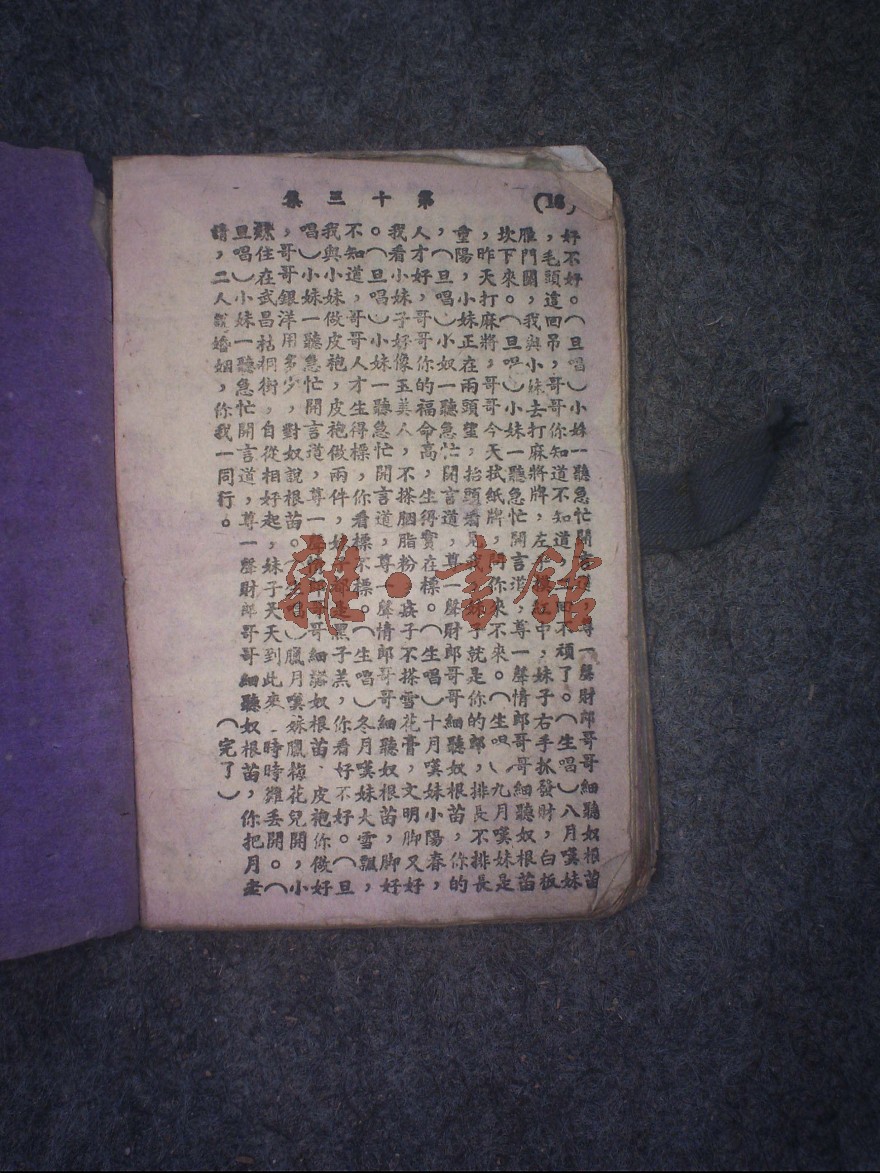 第十三集
(16)
好不好。(旦唱)小妹一聽急忙開言道,尊一聲財郎哥哥細聽奴根苗
,毛頭這回吊,哥哥你知道不知道,回不頑了。(生唱)八月嘆妹
雁門關,我與小妹去打麻將牌,左手摸紅中,妹子右手抓發財,白板
坎下來。(旦唱)小妹一聽急忙開言道,尊一聲情郎哥哥細聽奴根苗
,昨天打麻將,哥哥今天拭紙牌,問你來不來。(生唱)九月嘆妹是
重陽,小妹正在兩頭望,抬頭看見我,妹子就是你的郎,排長不排長
,(旦唱)小奴一聽急忙開言道,尊一聲財郎哥哥細聽奴根苗,你的
人才好,哥哥你的福命高,生得實在標。(生唱)十月嘆妹小陽春,
我看小妹子好像玉美人,不搽胭脂粉,妹子不搽雪花膏,文明脚又好
。(旦唱)小妹一聽急忙開言道,尊一聲情郎哥哥細聽奴根苗,脚好
不知道,哥哥人才生得標,你看標不標。(生唱)冬月嘆妹大雪飄,
我與小妹做皮袍,皮袍做兩件,妹子都是黑子羔,你看好不好。(旦
唱)小妹一聽急忙開言道,尊一聲情郎哥哥細聽奴根苗,皮袍你做好
,哥哥銀洋用多少,對奴說根苗。(生唱)臘月嘆妹臘梅花兒開,小
妹住在武昌枯桐街,自從相好起,妹子天天到此來,時時難丢開。(
旦唱)小妹一聽急忙開言道,尊一聲財郎哥哥細聽奴根苗,你把月老
請,二人就婚姻,你我一同行。
(完了)
雜·書館